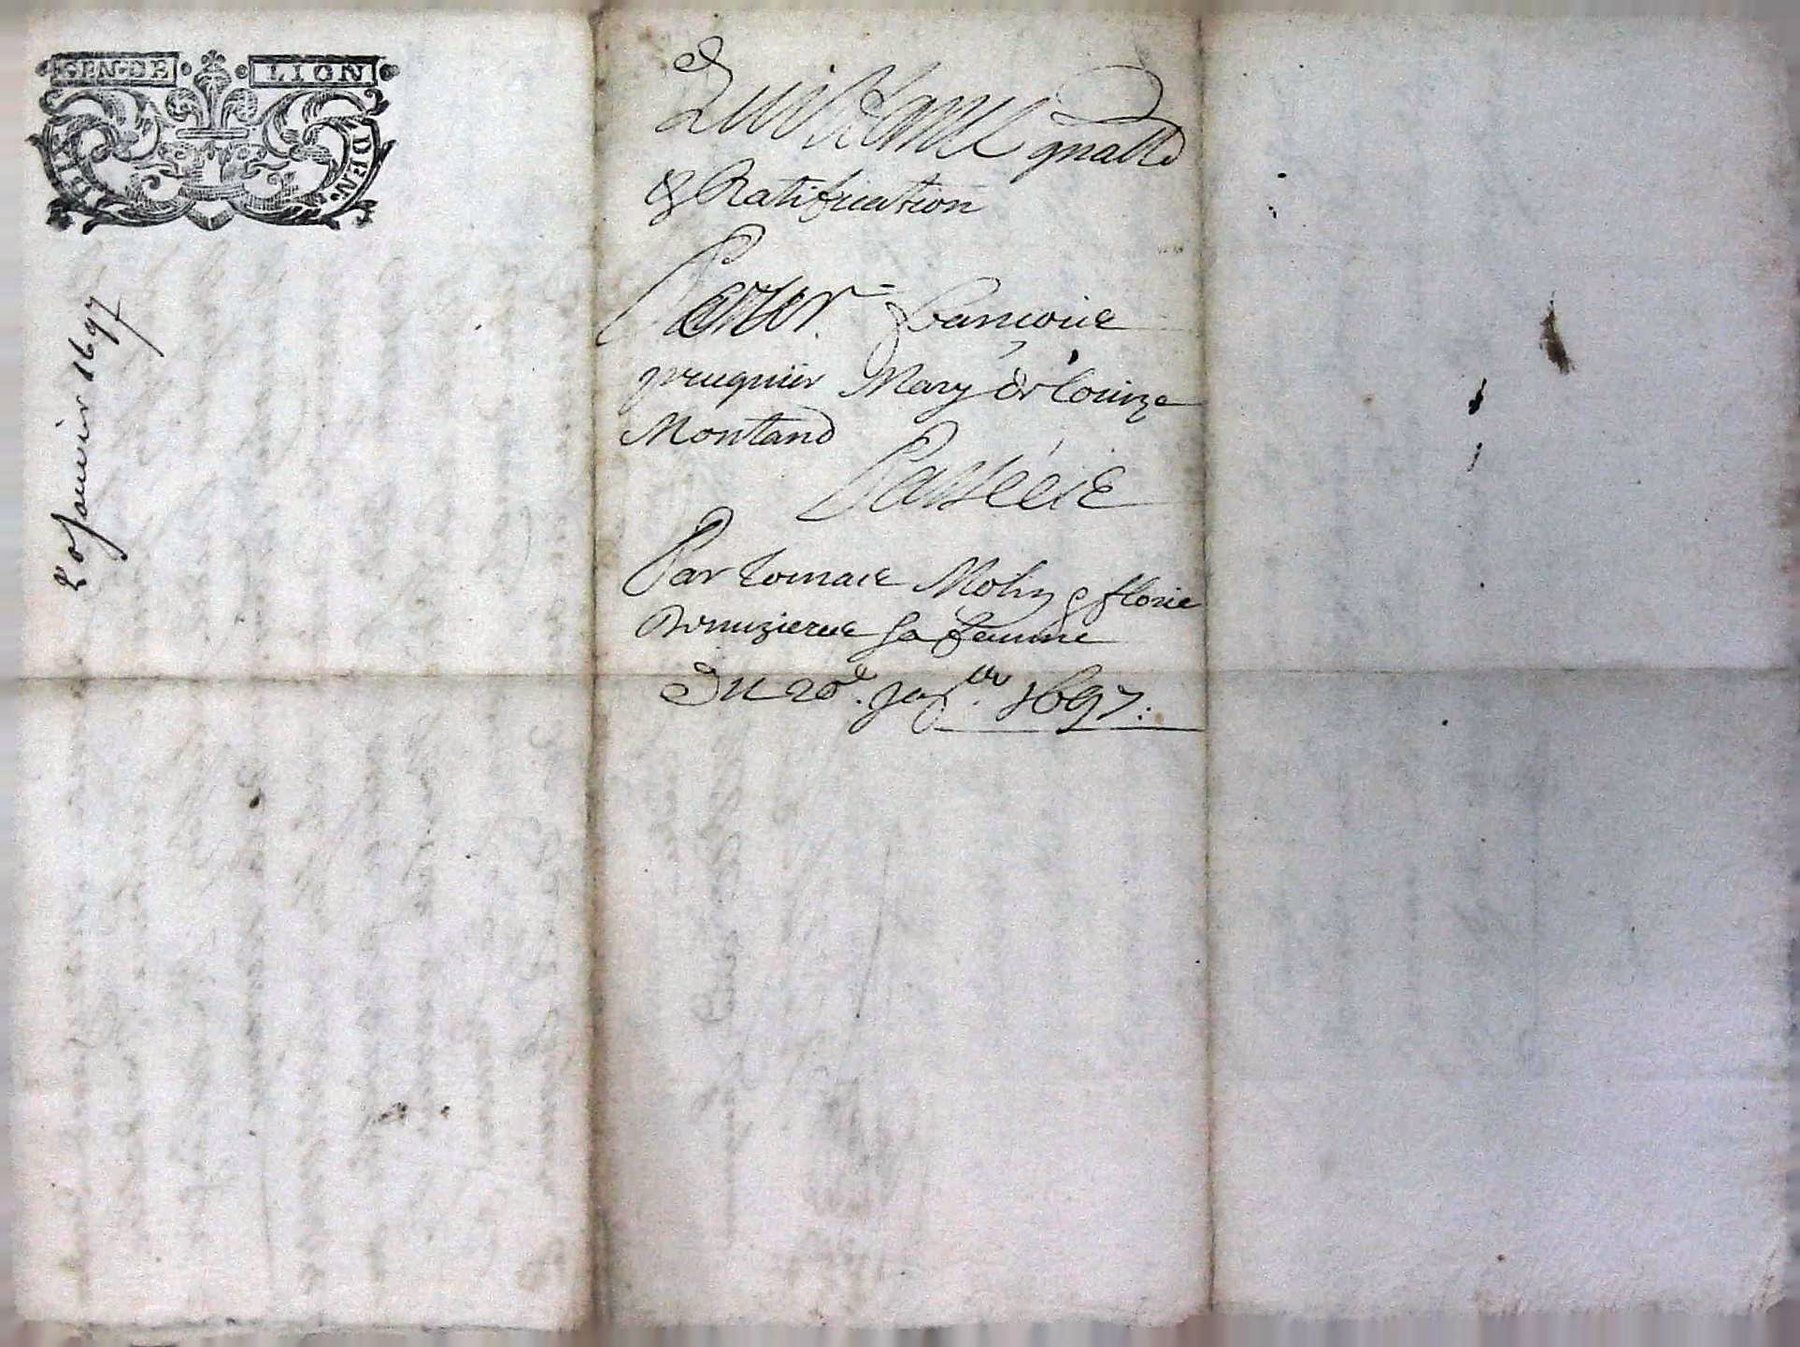 GEN·DE LION
DEN·
20 Janvier 1697
Quittance gnalle
& Ratification
Pour francoise
pruquier Mary de Louize
Montand
Passée
Par Mohy & florie
sa femme
Du 20e. janer 1697.